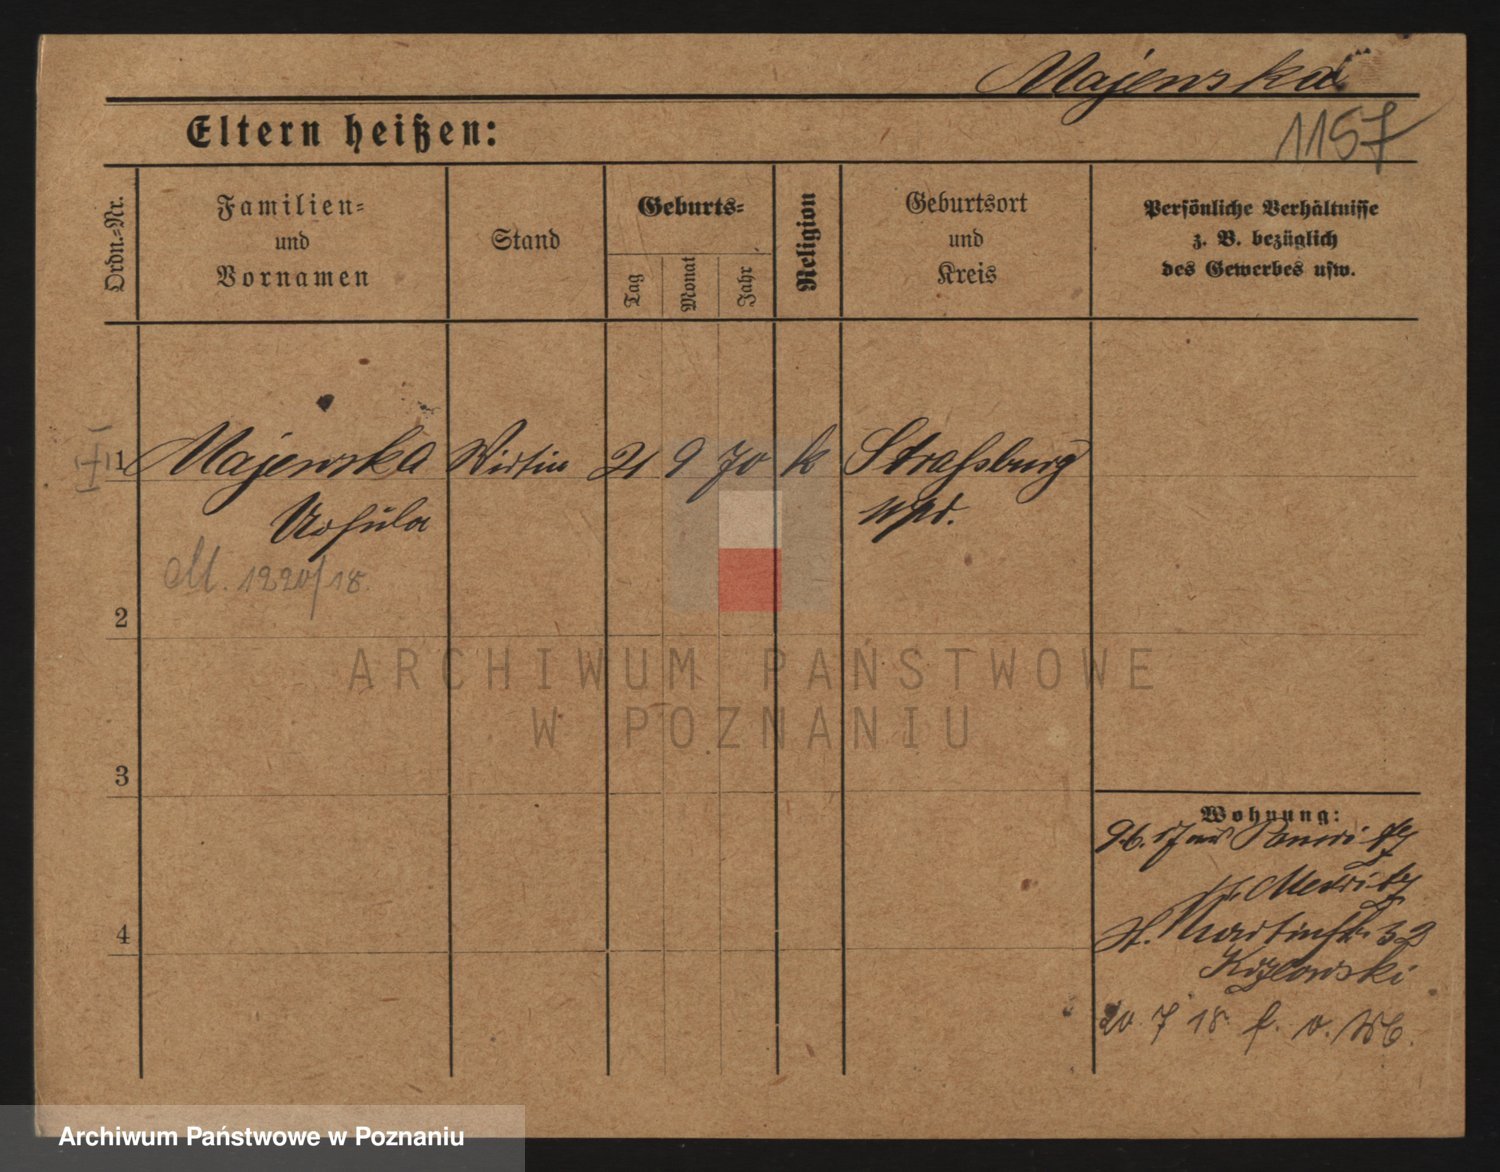 Majewska
1157
Eltern heißen:
Ordn.-Nr.
Familien-
und
Vornamen
Stand
Geburts-
Tag
Monat
Jahr
Religion
Geburtsort
und
Kreis
Persönliche Verhältnisse
z. B. bezüglich
des Gewerbes usw.
1 Majewska Wirtin 21 9 70 k Straßburg
Ursula Wpr.
M. 1220/18.
2
ARCHIWUM PAŃSTWOWE
W POZNANIU
3
Wohnung:
Meseritz
4
St. Martinstr. 32
Kozlowski
20 7 18 f. v.
Archiwum Państwowe w Poznaniu